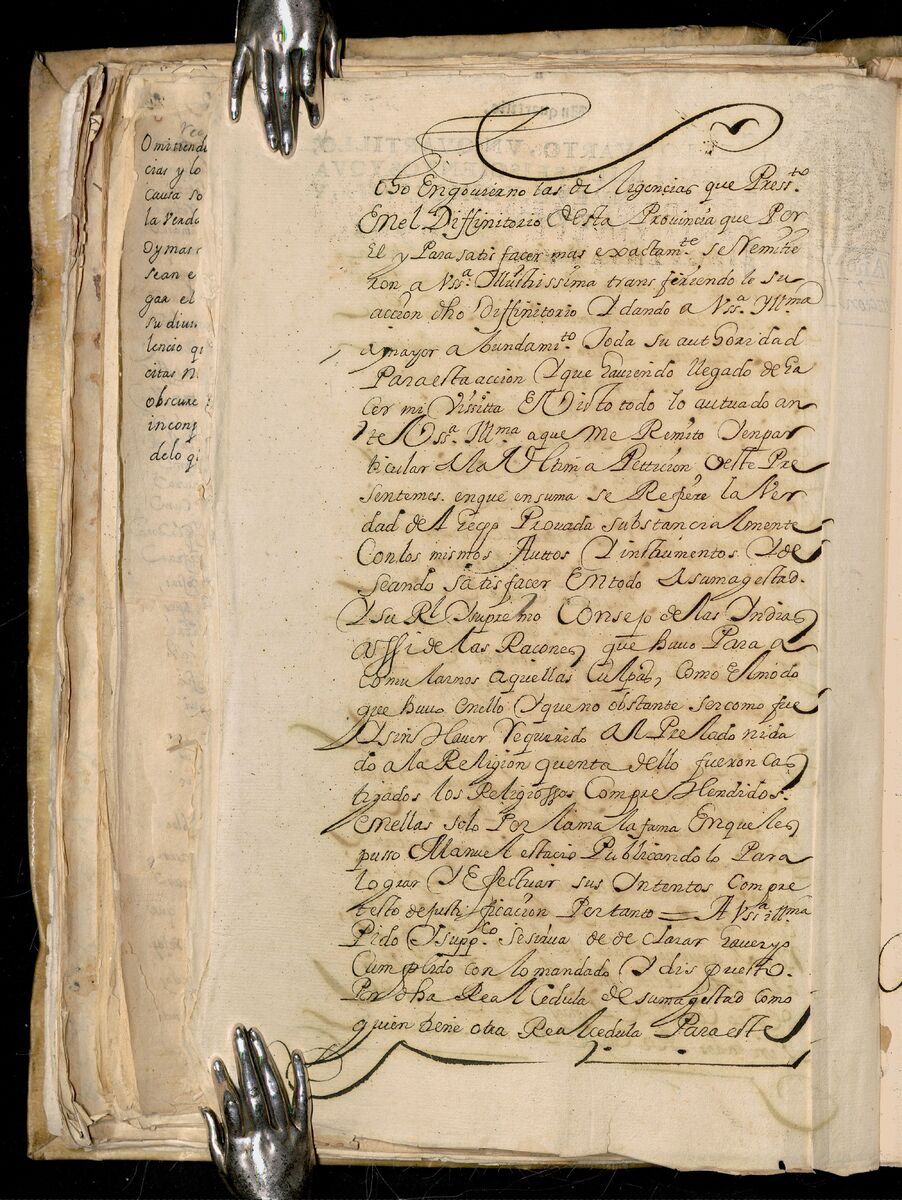 Omitiendo
cias y lo
causa so
la verda
sean e
gar el
su diuu
lencio q
citas
obscure
incons
delo q
cho En gouierno las diligencias que Press.to
En el Diffinitorio desta Prouincia que Por
El y Para satisfacer mas exactam.te se Remitie
ron a Vss.a Illustrissima transfiriendole su
accion dho Diffinitorio Y dando a Vss.a Yll.ma
a mayor abundami.to Toda su authoridad
Para esta accion Y que hauiendo llegado de ha
cer mi Vissitta E Visto todo lo autuado an
te Vss.a Ill.ma a que Me Remito Y en par
ticular A la Vltima Petticion deste Pre
sente mes. en que en suma se Refiere la Ver
dad del hecho Prouada substancialmente
Con los mismos Auttos Y instrumentos Y de
seando satisfacer En todo A su magestad.
Y su Rl Y supremo Consejo de las Yndias
assi de las Racones que huuo Para a
comularnos aquellas Culpas, como El modo
que huuo en ello Y que no obstante ser como fue
Y sin Hauer requerido Al Prelado ni da
do a la Religion quenta dello fueron cas
tigados los Religiossos Comprehendidos
en ellas solo Por la mala fama En que les
pusso Manuel estacio Publicandolo Para
lograr Y Efectuar sus Yntentos Com pre
testo de justificacion Por tanto = A Vss.a ill.ma
Pido Y supp.co se sirua de declarar hauer yo
Cumplido con lo mandado Y dispuesto.
Por dha Real Cedula de su magestad como
quien tiene otra Real cedula Para este